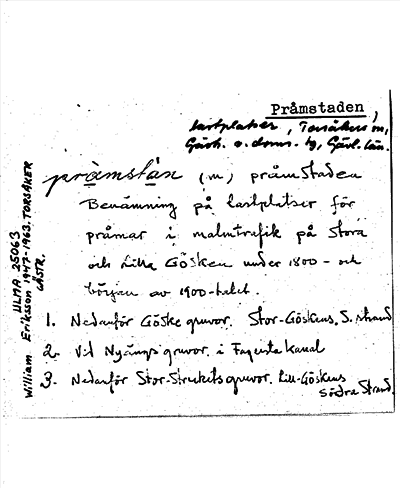 Pråmstaden,
lastplatser, Torsåkers sn,
Gästr. ö. doms. tg, Gävl. län.
pråmstan (m) pråmstaden
Benämning på lastplatser för
pråmar i malmtrafik på Stora
och Lilla Gösken under 1800- och
början av 1900-talet.
1. Nedanför Göske gruvor. Stor-Göskens S. strand
2. Vid Nyängs gruvor i Fagersta kanal
3. Nedanför Stor-Strecketsgruvor. Lill-Göskens
södra Strand.
ULMA 25063
William Eriksson 1947-1963. TORSÅKER
GÄSTR.